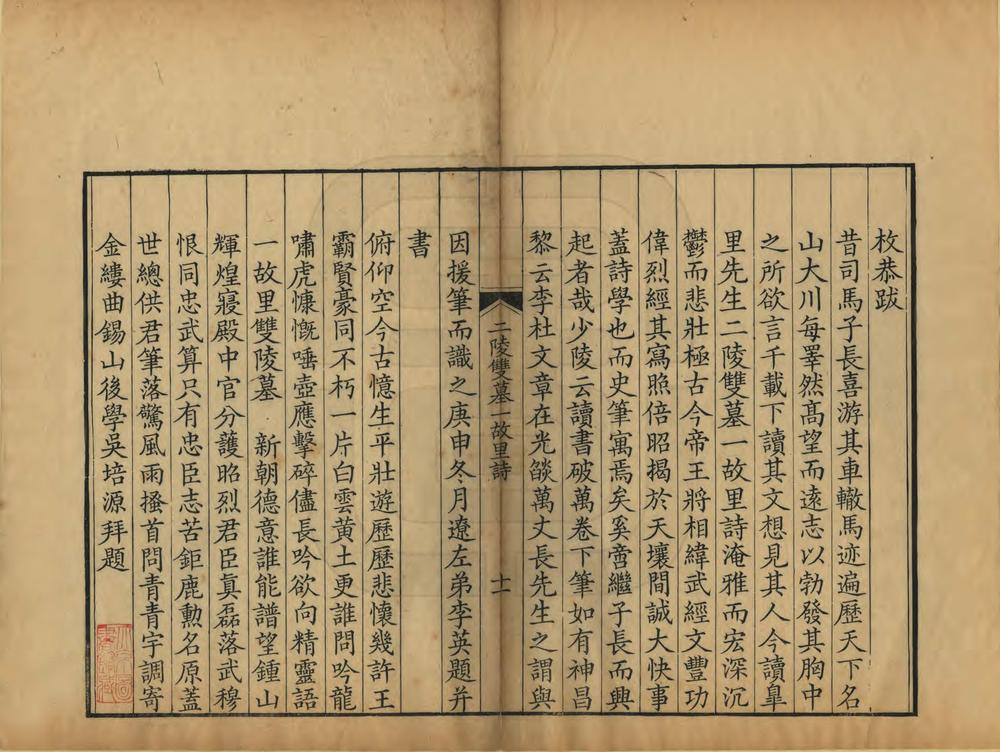 枚恭跋
昔司馬子長喜游其車轍馬迹遍歷天下名
山大川每睪然高望而遠志以勃發其胸中
之所欲言千載下讀其文想見其人今讀臯
里先生二陵雙墓一故里詩淹雅而宏深沉
鬱而悲壯極古今帝王將相緯武經文豐功
偉烈經其寫照倍昭揭於天壤間誠大快事
蓋詩學也而史筆寓焉矣奚啻繼子長而興
起者哉少陵云讀書破萬卷下筆如有神昌
黎云李杜文章在光燄萬丈長先生之謂與
因援筆而識之庚申冬月遼左弟李英題并
書
二陵雙墓一故里詩 十一
俯仰空今古憶生平壯遊歷歷悲懷幾許王
霸賢豪同不朽一片白雲黃土更誰問吟龍
嘯虎慷慨唾壺應擊碎儘長吟欲向精靈語
一故里雙陵墓 新朝德意誰能譜望鍾山
輝煌寢殿中官分護昭烈君臣真磊落武穆
恨同忠武算只有忠臣志苦鉅鹿勲名原蓋
世總供君筆落驚風雨搔首問青青宇調寄
金縷曲錫山後學吳培源拜題